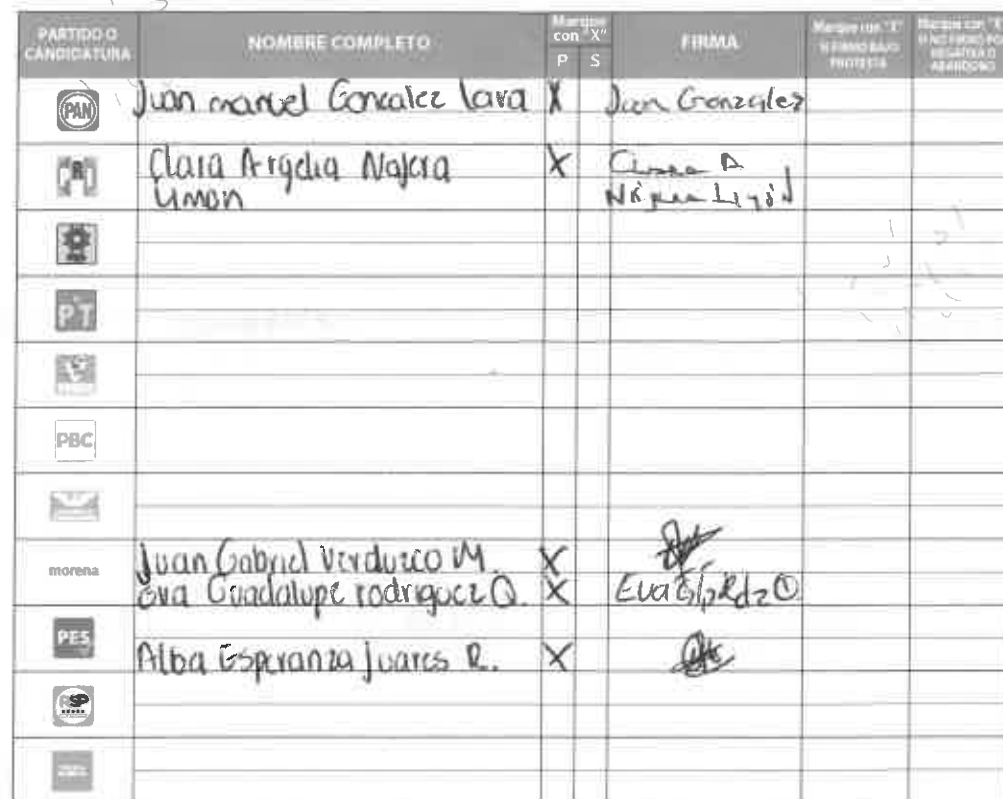 PARTIDO O CANDIDATURA
NOMBRE COMPLETO
Marque con "X"
P S
FIRMA
Marque con "X" SI FIRMÓ BAJO PROTESTA
Marque con "X" SI NO FIRMÓ POR NEGATIVA O ABANDONO
PAN Juan manuel Goncalez lara X Juan Gonzalez
R Clara Argelia Najera X Clara A
Limon
PT
PBC
morena Juan Gabriel Verduzco M. X
Eva Guadalupe rodriguez Q. X Eva Glp Rdz Q
PES
Alba Esperanza Juares R. X
RSP